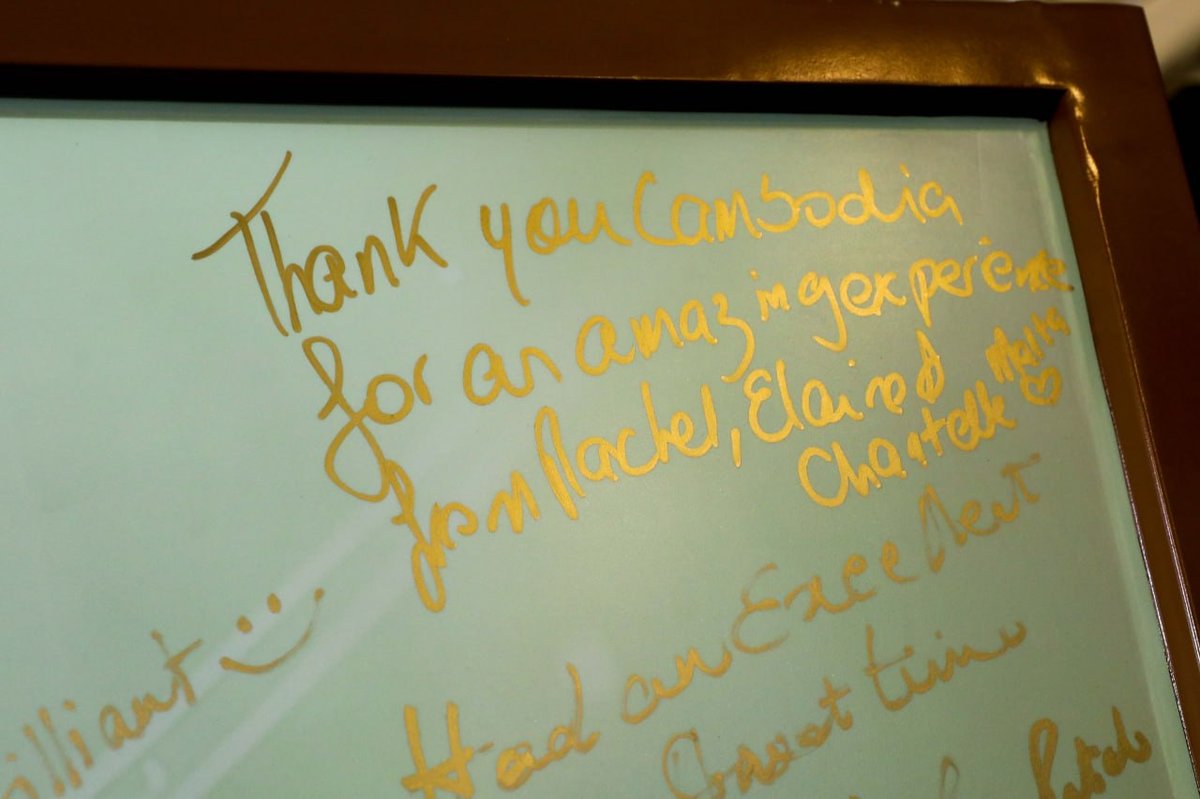 Thank you Cambodia
for an amazing experience
from Rachel, Elaine &
Chantelle Malta
Had an Excellent
Great time